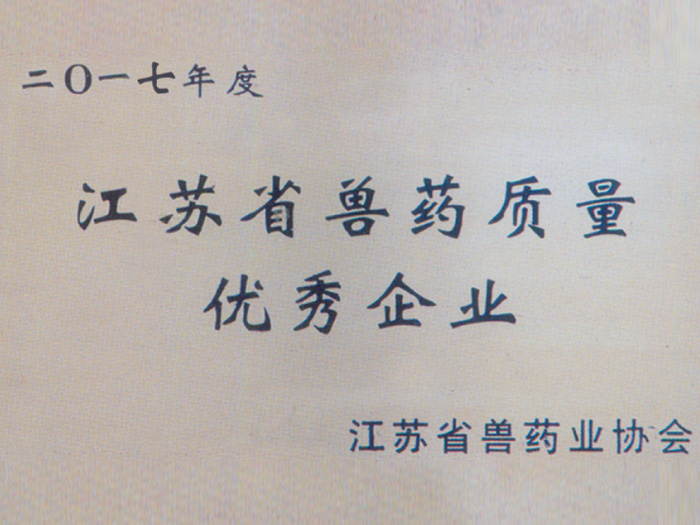 二〇一七年度
江苏省兽药质量
优秀企业
江苏省兽药业协会